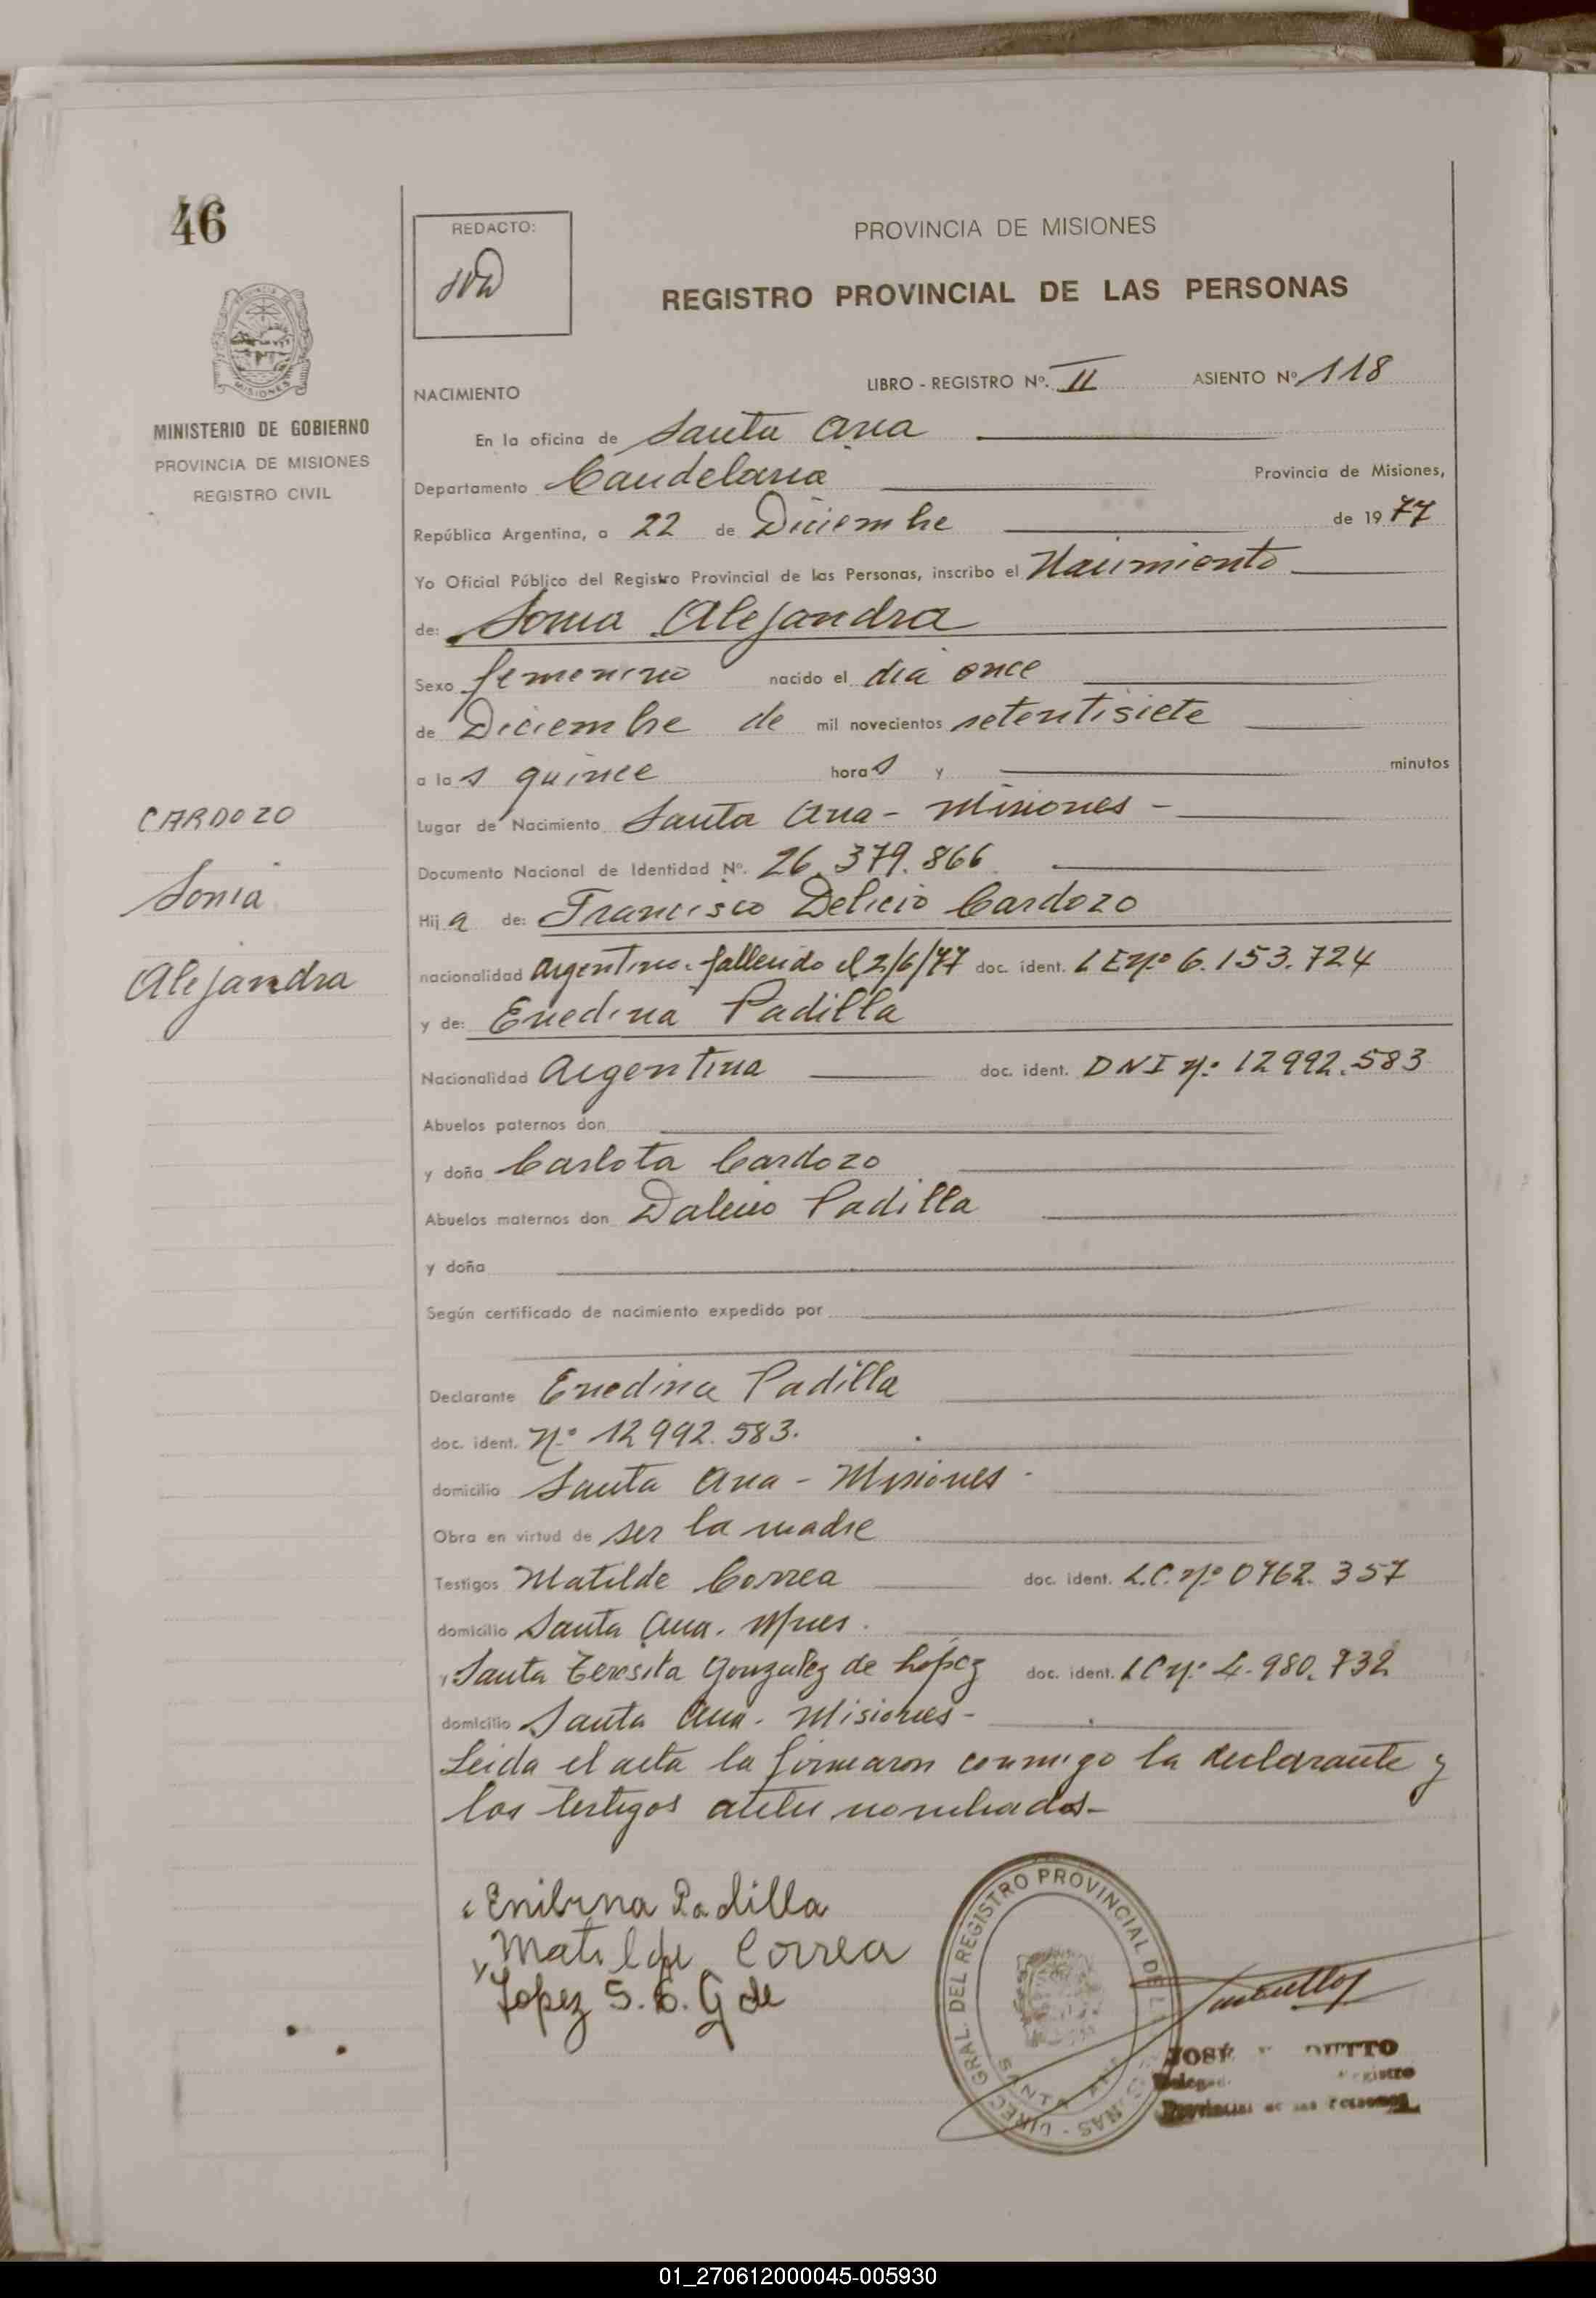 46
REDACTO:
PROVINCIA DE MISIONES
REGISTRO PROVINCIAL DE LAS PERSONAS
PROVINCIA DE
MISIONES
MINISTERIO DE GOBIERNO
PROVINCIA DE MISIONES
REGISTRO CIVIL
NACIMIENTO LIBRO - REGISTRO Nº. II ASIENTO Nº 118
En la oficina de Santa Ana
Departamento Candelaria Provincia de Misiones,
República Argentina, a 22 de Diciembre de 1977
Yo Oficial Público del Registro Provincial de las Personas, inscribo el Nacimiento
de: Sonia Alejandra
Sexo femenino nacido el dia once
de Diciembre de mil novecientos setentisiete
a las quince horas y minutos
Lugar de Nacimiento Santa Ana - Misiones -
Documento Nacional de Identidad Nº. 26.379.866
Hija de: Francisco Delicio Cardozo
nacionalidad Argentino. fallecido el 2/6/77 doc. ident. L E Nº 6.153.724
y de: Enedina Padilla
Nacionalidad Argentina doc. ident. DNI Nº 12992.583
Abuelos paternos don
y doña Carlota Cardozo
Abuelos maternos don Padilla
y doña
Según certificado de nacimiento expedido por
Declarante Enedina Padilla
doc. ident. Nº 12992.583.
domicilio Santa Ana - Misiones -
Obra en virtud de ser la madre
Testigos Matilde Correa doc. ident. L.C. Nº 0762.357
domicilio Santa Ana. Mnes.
y Santa Teresita Gonzalez de Lopez doc. ident. LC Nº 4.980.732
domicilio Santa Ana. Misiones -
Leida el acta la firmaron conmigo la declarante y
los testigos nombrados-
CARDOZO
Sonia
Alejandra
Padilla
Matilde Correa
Lopez S. T. G de
DIREC. GRAL. DEL REGISTRO PROVINCIAL DE LAS PERSONAS -
SANTA ANA
JOSÉ
Provincial de las Personas
01_270612000045-005930